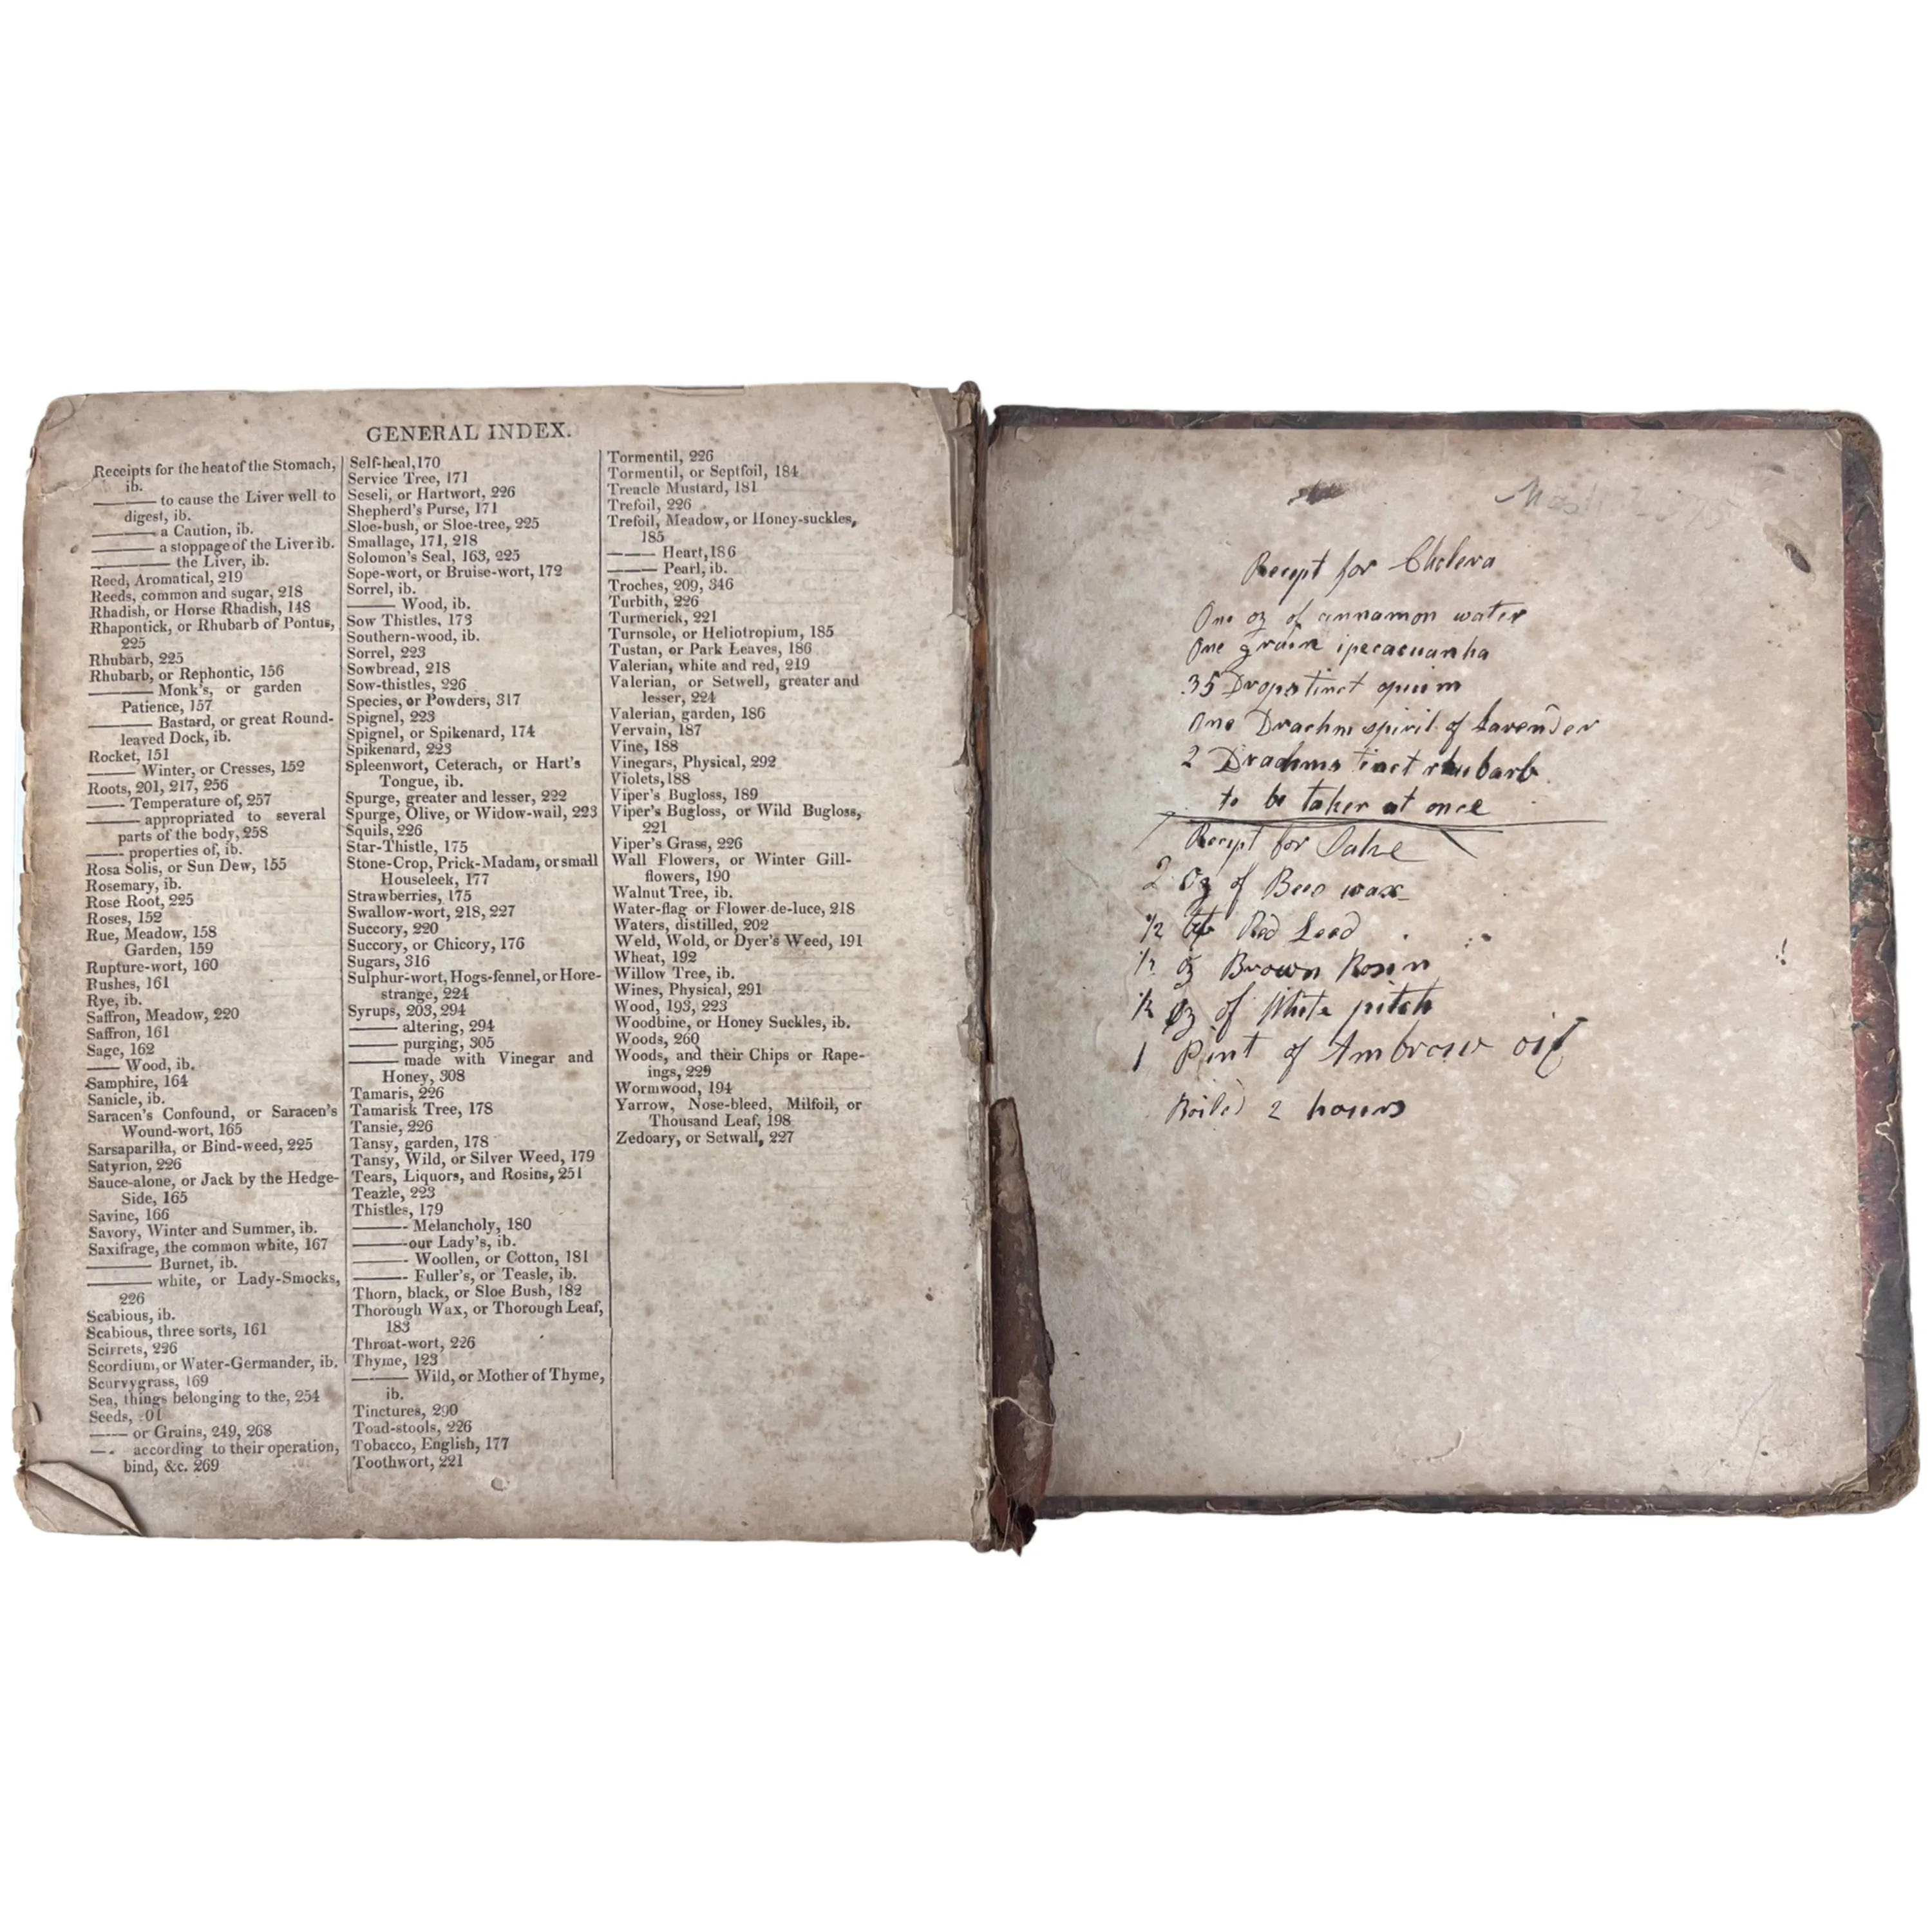 GENERAL INDEX.
Receipts for the heat of the Stomach,
ib.
——— to cause the Liver well to
digest, ib.
——— a Caution, ib.
——— a stoppage of the Liver ib.
——— the Liver, ib.
Reed, Aromatical, 219
Reeds, common and sugar, 218
Rhadish, or Horse Rhadish, 148
Rhapontick, or Rhubarb of Pontus,
225
Rhubarb, 225
Rhubarb, or Rephontic, 156
——— Monk's, or garden
Patience, 157
——— Bastard, or great Round-
leaved Dock, ib.
Rocket, 151
——— Winter, or Cresses, 152
Roots, 201, 217, 256
——— Temperature of, 257
——— appropriated to several
parts of the body, 258
——— properties of, ib.
Rosa Solis, or Sun Dew, 155
Rosemary, ib.
Rose Root, 225
Roses, 152
Rue, Meadow, 158
Garden, 159
Rupture-wort, 160
Rushes, 161
Rye, ib.
Saffron, Meadow, 220
Saffron, 161
Sage, 162
—— Wood, ib.
Samphire, 164
Sanicle, ib.
Saracen's Confound, or Saracen's
Wound-wort, 165
Sarsaparilla, or Bind-weed, 225
Satyrion, 226
Sauce-alone, or Jack by the Hedge-
Side, 165
Savine, 166
Savory, Winter and Summer, ib.
Saxifrage, the common white, 167
——— Burnet, ib.
——— white, or Lady-Smocks,
226
Scabious, ib.
Scabious, three sorts, 161
Scirrets, 226
Scordium, or Water-Germander, ib.
Scurvygrass, 169
Sea, things belonging to the, 254
Seeds, 01
—— or Grains, 249, 268
—— according to their operation,
bind, &c. 269
Self-heal, 170
Service Tree, 171
Seseli, or Hartwort, 226
Shepherd's Purse, 171
Sloe-bush, or Sloe-tree, 225
Smallage, 171, 218
Solomon's Seal, 163, 225
Sope-wort, or Bruise-wort, 172
Sorrel, ib.
—— Wood, ib.
Sow Thistles, 173
Southern-wood, ib.
Sorrel, 223
Sowbread, 218
Sow-thistles, 226
Species, or Powders, 317
Spignel, 223
Spignel, or Spikenard, 174
Spikenard, 223
Spleenwort, Ceterach, or Hart's
Tongue, ib.
Spurge, greater and lesser, 222
Spurge, Olive, or Widow-wail, 223
Squils, 226
Star-Thistle, 175
Stone-Crop, Prick-Madam, or small
Houseleek, 177
Strawberries, 175
Swallow-wort, 218, 227
Succory, 220
Succory, or Chicory, 176
Sugars, 316
Sulphur-wort, Hogs-fennel, or Hore-
strange, 224
Syrups, 203, 294
—— altering, 294
—— purging, 305
—— made with Vinegar and
Honey, 308
Tamaris, 226
Tamarisk Tree, 178
Tansie, 226
Tansy, garden, 178
Tansy, Wild, or Silver Weed, 179
Tears, Liquors, and Rosins, 251
Teazle, 223
Thistles, 179
——— Melancholy, 180
——— our Lady's, ib.
——— Woollen, or Cotton, 181
——— Fuller's, or Teasle, ib.
Thorn, black, or Sloe Bush, 182
Thorough Wax, or Thorough Leaf,
183
Throat-wort, 226
Thyme, 123
——— Wild, or Mother of Thyme,
ib.
Tinctures, 290
Toad-stools, 226
Tobacco, English, 177
Toothwort, 221
Tormentil, 226
Tormentil, or Septfoil, 184
Treacle Mustard, 181
Trefoil, 226
Trefoil, Meadow, or Honey-suckles,
185
——— Heart, 186
——— Pearl, ib.
Troches, 209, 346
Turbith, 226
Turmerick, 221
Turnsole, or Heliotropium, 185
Tustan, or Park Leaves, 186
Valerian, white and red, 219
Valerian, or Setwell, greater and
lesser, 224
Valerian, garden, 186
Vervain, 187
Vine, 188
Vinegars, Physical, 292
Violets, 188
Viper's Bugloss, 189
Viper's Bugloss, or Wild Bugloss,
221
Viper's Grass, 226
Wall Flowers, or Winter Gill-
flowers, 190
Walnut Tree, ib.
Water-flag or Flower de-luce, 218
Waters, distilled, 202
Weld, Wold, or Dyer's Weed, 191
Wheat, 192
Willow Tree, ib.
Wines, Physical, 291
Wood, 193, 223
Woodbine, or Honey Suckles, ib.
Woods, 260
Woods, and their Chips or Rape-
ings, 229
Wormwood, 194
Yarrow, Nose-bleed, Milfoil, or
Thousand Leaf, 198
Zedoary, or Setwall, 227
Recept for Cholera
One oz of cinnamon water
One grain ipecacuanha
35 Drops tinct opium
One Drachm spirit of Lavender
2 Drachms tinct rhubarb
to be taken at once
Recept for Salve
2 oz of Bees wax
1/2 Red Lead
1/2 oz Brown Rosin
1/2 oz of White pitch
1 Pint of Ambrow oil
Boiled 2 hours